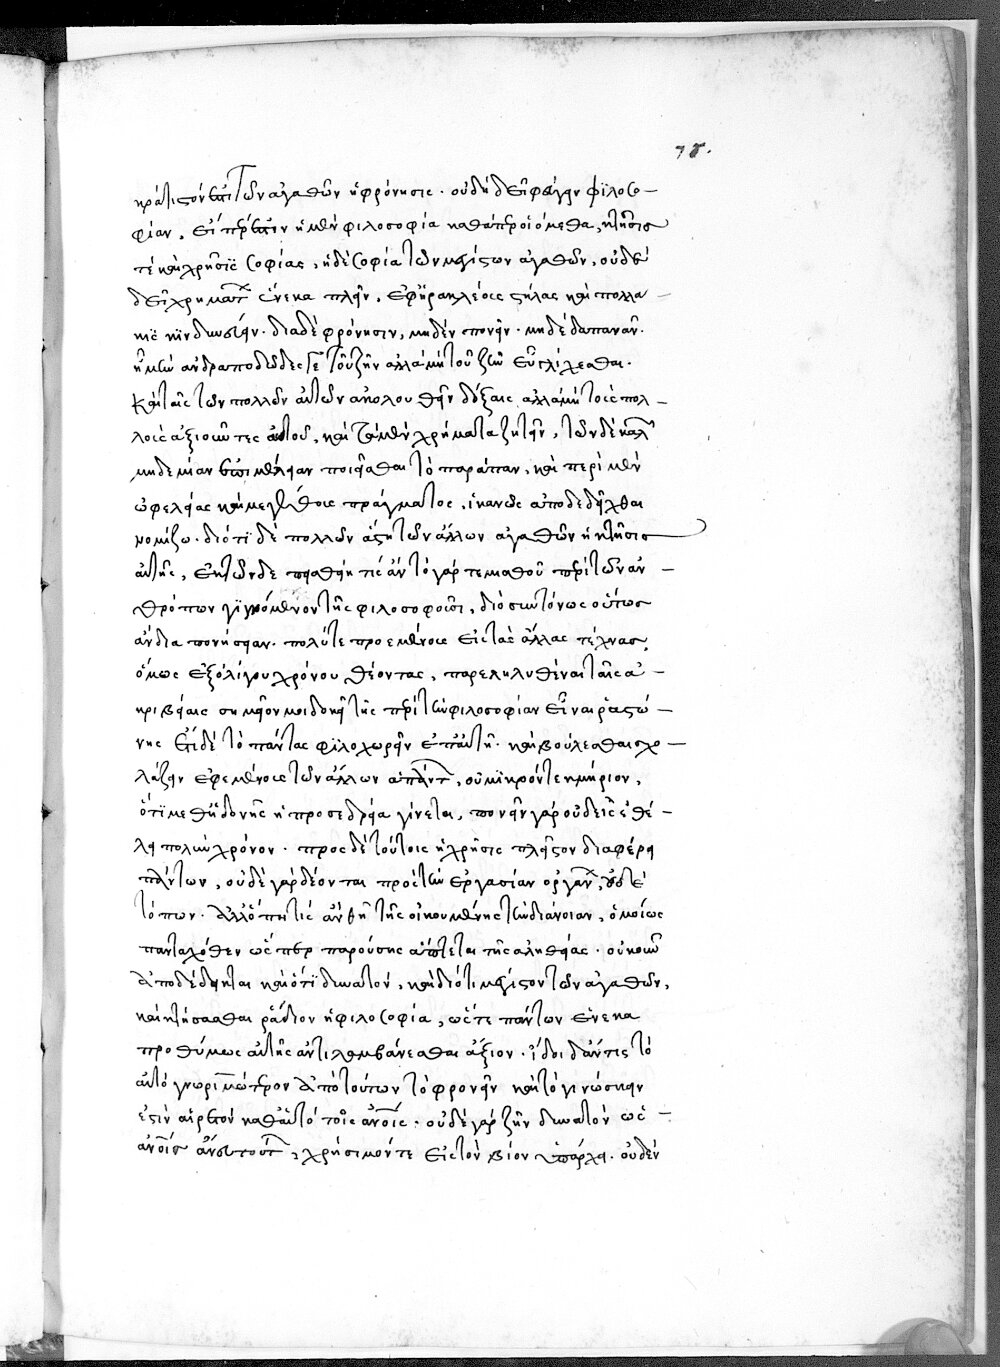 78.
κράτιστόν ἐστι τῶν ἀγαθῶν ἡ φρόνησις. οὐ δὴ δεῖ φεύγειν φιλοσο
φίαν, εἴπερ ἐστὶν ἡ μὲν φιλοσοφία καθάπερ οἰόμεθα, κτῆσίς
τε καὶ χρῆσις σοφίας, ἡ δὲ σοφία τῶν μεγίστων ἀγαθῶν, οὐδὲ
δεῖ χρημάτων ἕνεκα πλεῖν, ἐφ' ἡρακλέους στήλας καὶ πολλά
κις κινδυνεύειν. διὰ δὲ φρόνησιν, μηδὲν πονεῖν. μηδὲ δαπανᾶν.
ἦ μὴν ἀνδραποδῶδες γε τοῦ ζῆν ἀλλὰ μὴ τοῦ ζῆν εὖ γλίχεσθαι.
καὶ ταῖς τῶν πολλῶν αὐτὸν ἀκολουθεῖν δόξαις ἀλλὰ μὴ τοὺς πολ
λοὺς ἀξιοῦν ταῖς αὐτοῦ, καὶ τὰ μὲν χρήματα ζητεῖν, τῶν δὲ καλῶν
μηδεμίαν ἐπιμέλειαν ποιεῖσθαι τὸ παράπαν, καὶ περὶ μὲν
ὠφελείας καὶ μεγέθους πράγματος, ἱκανῶς ἀποδεδεῖχθαι
νομίζω. διότι δὲ πολλῶν ῥᾴστη τῶν ἄλλων ἀγαθῶν ἡ κτῆσις
αὐτῆς, ἐκ τῶνδε πεισθείη τις ἄν τὸ γὰρ τε μισθοῦ παρὰ τῶν ἀν
θρώπων γιγνόμενον τῆς φιλοσοφοῦσι, διὸ συντόνως οὕτως
ἂν διαπονήσειαν. πολύ τε προεμένους εἰς τὰς ἄλλας τέχνας,
ὅμως ἐξ ὀλίγου χρόνου θέοντας, παρεληλυθέναι ταῖς ἀ
κριβείαις σημεῖόν μοι δοκεῖ τῆς περὶ τὴν φιλοσοφίαν εἶναι ῥᾳστώ
νης ἔτι δὲ τὸ πάντας φιλοχωρεῖν ἐπ' αὐτῇ. καὶ βούλεσθαι σχο
λάζειν ἐφεμένους τῶν ἄλλων ἁπάντων, οὐ μικρόν τεκμήριον,
ὅτι μεθ' ἡδονῆς ἡ προσεδρεία γίνεται, πονεῖν γὰρ οὐδεὶς ἐθέ
λει πολὺν χρόνον. πρὸς δὲ τούτοις ἡ χρῆσις πλεῖστον διαφέρει
πάντων, οὐδὲ γὰρ δέονται πρὸς τὴν ἐργασίαν ὀργάνων, οὐδὲ
τόπων. ἀλλ' ὅπῃ τις ἂν θῇ τῆς οἰκουμένης τὴν διάνοιαν, ὁμοίως
πανταχόθεν ὥσπερ παρούσης ἅπτεται τῆς ἀληθείας. οὐκοῦν
ἀποδέδεικται καὶ ὅτι δυνατόν, καὶ διότι μέγιστον τῶν ἀγαθῶν,
καὶ κτήσασθαι ῥᾴδιον ἡ φιλοσοφία, ὥστε πάντων ἕνεκα
προθύμως αὐτῆς ἀντιλαμβάνεσθαι ἄξιον. ἴδοι δ' ἄν τις τὸ
αὐτὸ γνωριμώτερον ἀπὸ τούτων τὸ φρονεῖν καὶ τὸ γινώσκειν
ἐστὶν αἱρετὸν καθ' αὑτὸ τοῖς ἀνθρώποις. οὐδὲ γὰρ ζῆν δυνατὸν ὡς
ἀνθρώποις ἄνευ τούτων, χρήσιμόν τε εἰς τὸν βίον ὑπάρχει. οὐδὲν